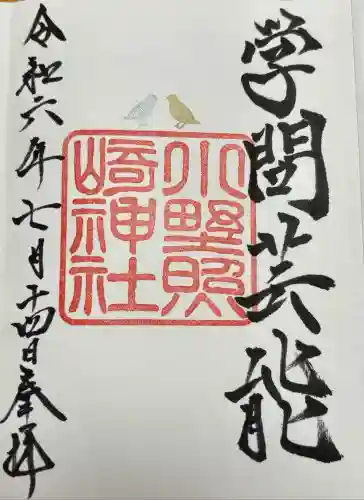 学問芸能
小野照
崎神社
令和六年七月十四日奉拝